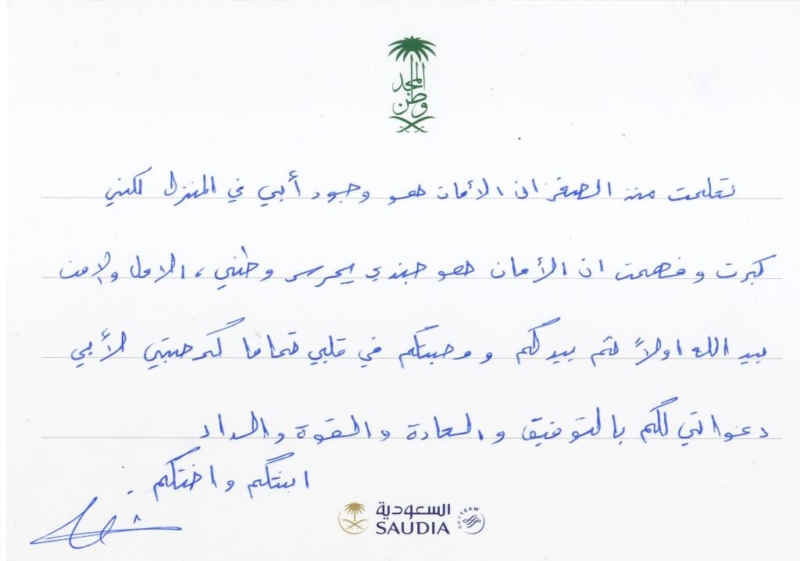 وطن المجد
تعلمت منذ الصغر ان الأمان هو وجود أبي في المنزل لكنني
كبرت و فهمت ان الأمان هو جندي يحرس وطني ، الامل والامن
بيد الله اولاً ثم بيدكم و محبتكم في قلبي تماما كمحبتي لأبي
دعواتي لكم بالتوفيق و السعادة والقوة والسداد
ابنتكم واختكم .
السعودية
SAUDIA
SKYTEAM